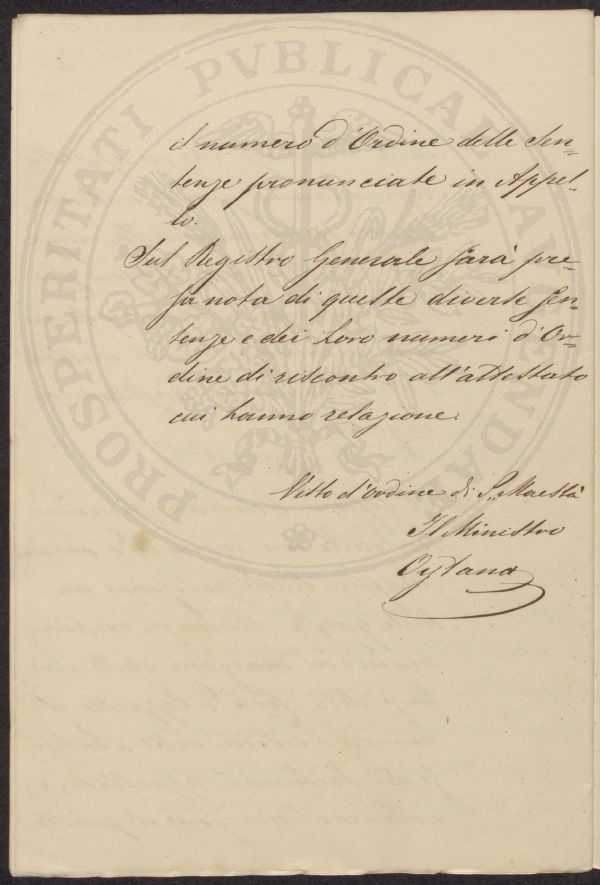 PROSPERITATI PVBLICAE AVGENDAE
il numero d'Ordine delle Sen=
tenze pronunciate in Appel=
lo.
Sul Registro Generale sarà pre=
sa nota di queste diverse Sen=
tenze e dei loro numeri d'Or=
dine di riscontro all'attestato
cui hanno relazione.
Visto d'ordine di S. Maestà
Il Ministro
Oytana